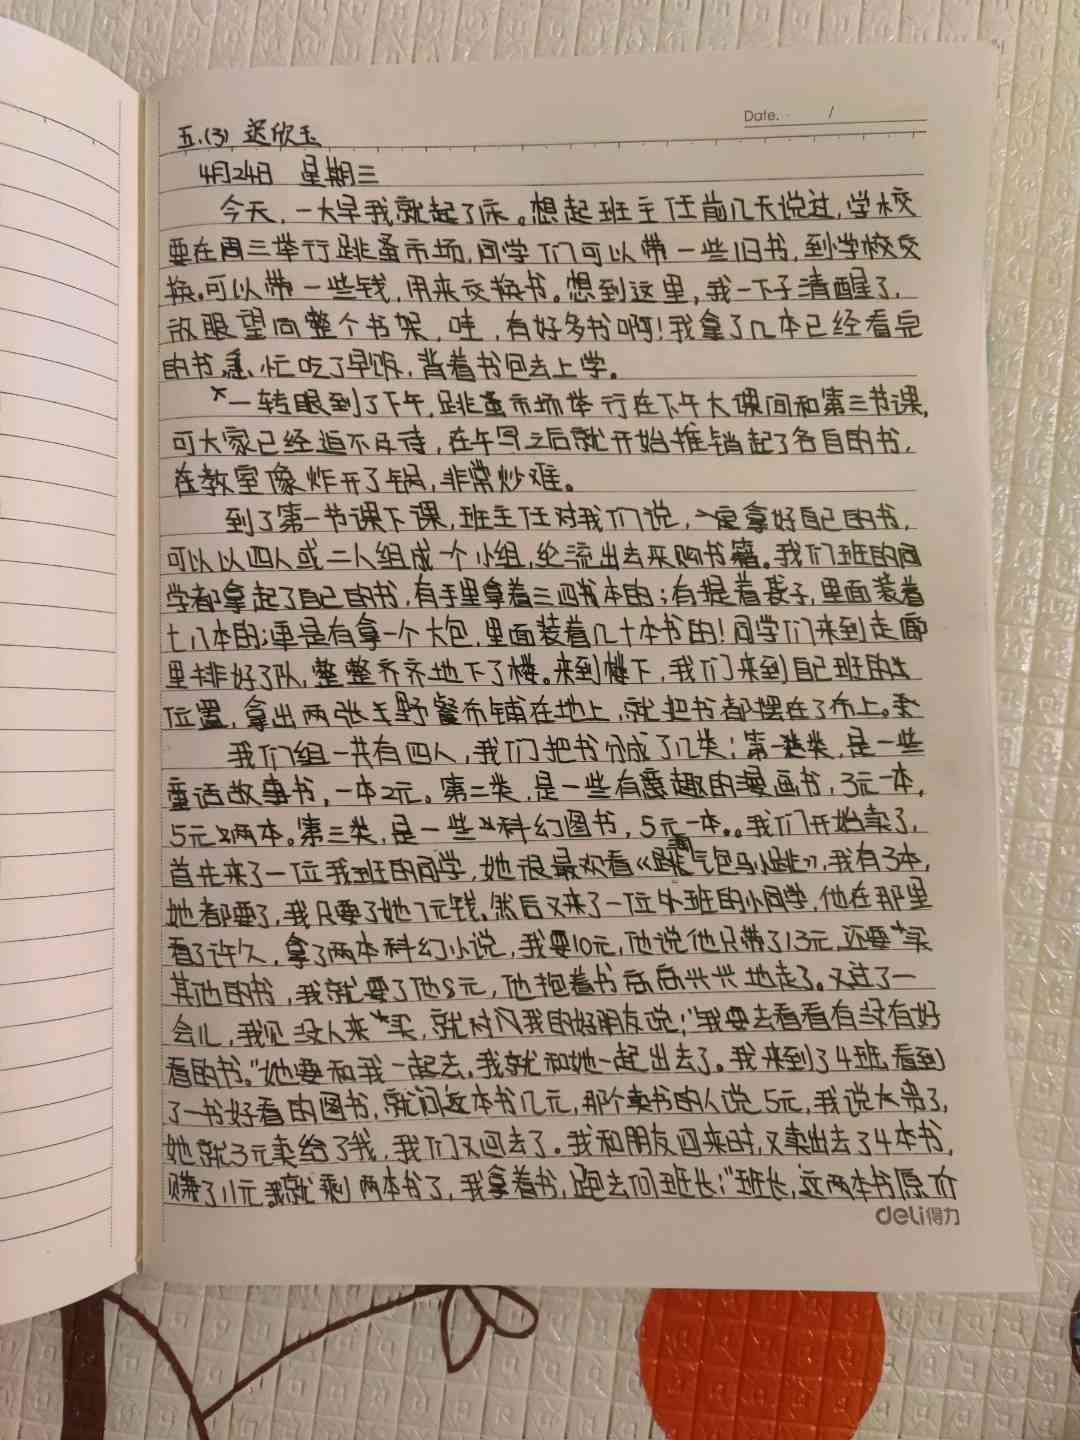 Date. /
五.(3) 迟欣玉
4月24日 星期三
今天，一大早我就起了床。想起班主任前几天说过，学校
要在周三举行跳蚤市场，同学们可以带一些旧书，到学校交
换。可以带一些钱，用来交换书。想到这里，我一下子清醒了，
放眼望向整个书架，哇，有好多书啊！我拿了几本已经看完
的书，急忙吃了早饭，背着书包去上学。
一转眼到了下午，跳蚤市场举行在下午大课间和第三节课，
可大家已经迫不及待，在午写之后就开始推销起了各自的书，
在教室像炸开了锅，非常炒难。
到了第一节课下课，班主任对我们说，一定拿好自己的书，
可以以四人或二人组成一个小组，轮流出去采购书籍。我们班的同
学都拿起了自己的书，有手里拿着三四本的；有提着袋子，里面装着
七八本的；更是有拿一个大包，里面装着几十本书的！同学们来到走廊
里排好了队，整整齐齐地下了楼。来到楼下，我们来到自己班的
位置，拿出两张野餐布铺在地上，就把书都摆在了布上。
我们组一共有四人，我们把书分成了几类；第一类，是一些
童话故事书，一本2元。第二类，是一些有意趣的漫画书，3元一本，
5元两本。第三类，是一些科幻图书，5元一本。我们开始卖了，
首先来了一位我班的同学，她很最欢看《淘气包马小跳》，我有3本，
她都要了，我只要了她7元钱。然后又来了一位外班的小同学，他在那里
看了许久，拿了两本科幻小说，我要10元，他说他只带了13元，还要买
其他的书，我就要了他8元，他抱着书高高兴兴地走了。又过了一
会儿，我见没人来买，就对我的好朋友说；“我要去看看有没有好
看的书。”她要和我一起去，我就和她一起出去了。我来到了4班，看到
了一书好看的图书，就问这本书几元，那个卖书的人说5元，我说太贵了，
她就3元卖给了我，我们又回去了。我和朋友回来时，又卖出去了4本书，
赚了11元，我就剩两本书了，我拿着书，跑去问班长；“班长，这两本书原价
deli得力